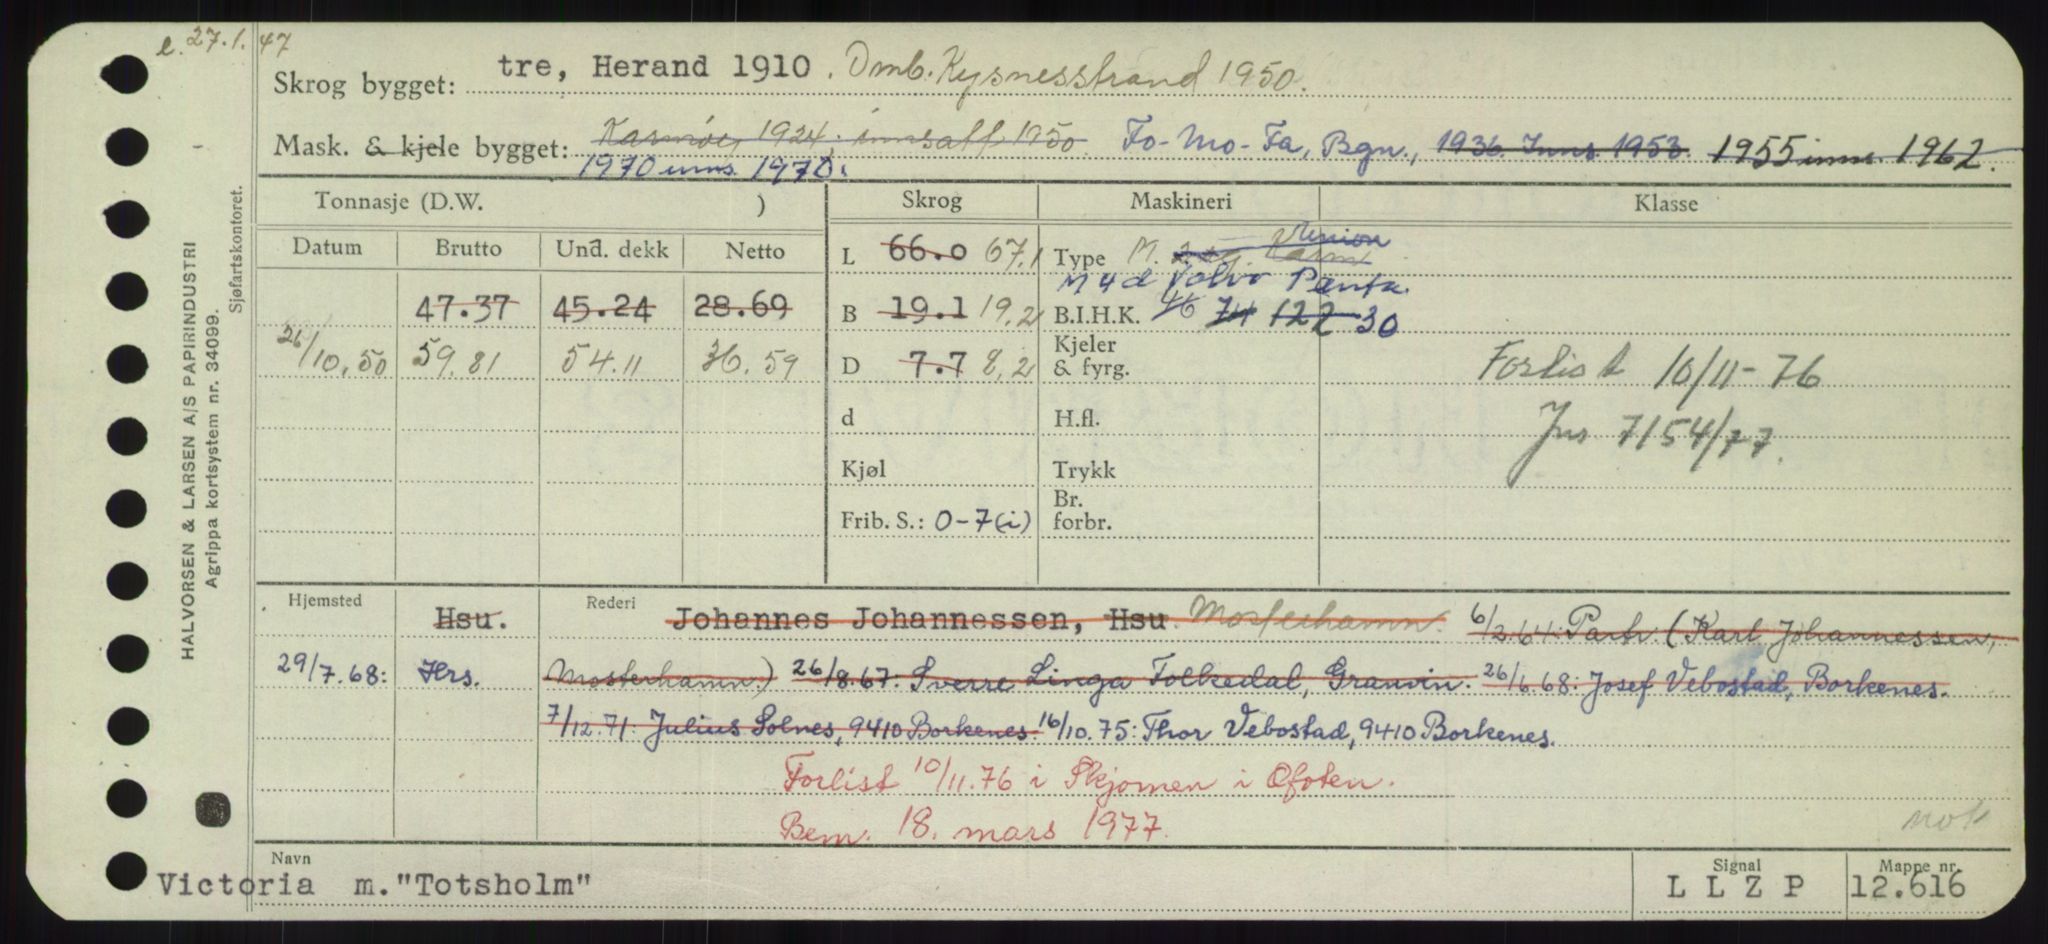 e. 27.1.47
Skrog bygget: tre, Herand 1910. Omb. Kysnesstrand 1950.
Mask. & kjele bygget: Karmøy 1924, innsatt 1950. Fo-Mo-Fa, Bgn., 1936. Inns. 1953. 1955 inns. 1962.
1970 inns. 1970.
Tonnasje (D.W. ) Skrog Maskineri Klasse
Datum Brutto Und. dekk Netto
L 66.0 67.1 Type M. Union
M 4 d Volvo Penta.
47.37 45.24 28.69 B 19.1 19.2 B.I.H.K. 46 74 122 30
26/10.50 59.81 54.11 36.59 D 7.7 8,2 Kjeler & fyrg.
Forlist 10/11-76
d H.fl.
Jnr 7154/77.
Kjøl Trykk
Frib. S.: 0-7(i) Br. forbr.
Hjemsted Hsu. Rederi Johannes Johannessen, Hsu. Mosterhamn. 6/2.64: Partr. (Karl Johannessen,
29/7.68: Hrs. Mosterhamn) 26/8.67: Sverre Linga Folkedal, Granvin. 26/6.68: Josef Vebostad, Borkenes.
7/12.71: Julius Solnes, 9410 Borkenes. 16/10.75: Thor Vebostad, 9410 Borkenes.
Forlist 10/11.76 i Skjomen i Ofoten.
Bem. 18. mars 1977.
not
Navn Signal Mappe nr.
Victoria m. "Totsholm" L L Z P 12.616
HALVORSEN & LARSEN A/S PAPIRINDUSTRI
Agrippa kortsystem nr. 34099.
Sjøfartskontoret.